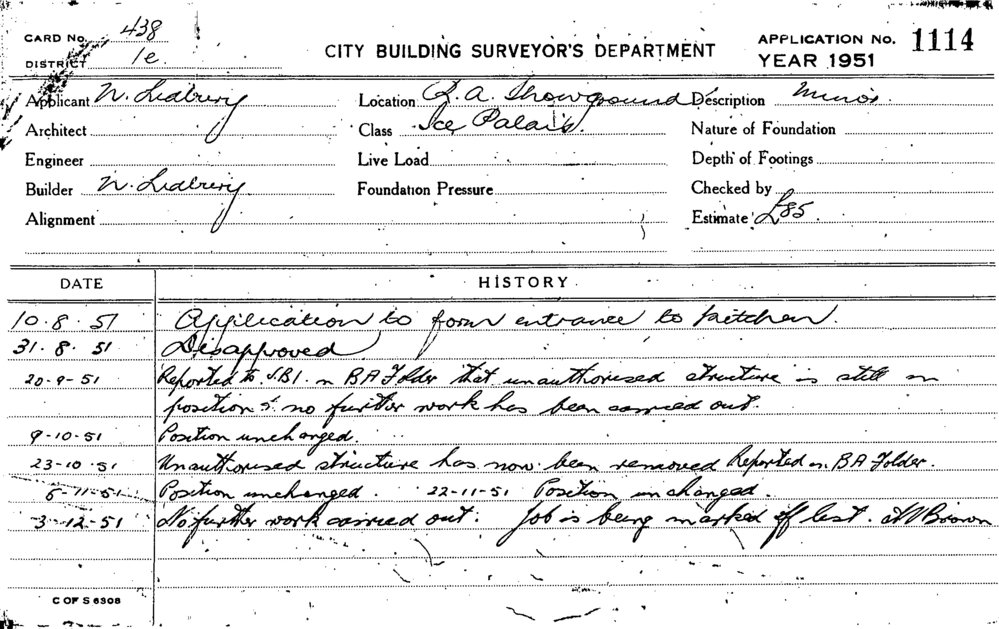 CARD No. 438
DISTRICT 1e.
CITY BUILDING SURVEYOR'S DEPARTMENT
APPLICATION No. 1114
YEAR 1951
Applicant N. Lidbury Location R.A. Showground Description Minor.
Architect Class Ice Palais. Nature of Foundation
Engineer Live Load Depth of Footings
Builder N. Lidbury Foundation Pressure Checked by
Alignment Estimate £85.
DATE HISTORY
10.8.51 Application to form entrance to kitchen.
31.8.51 Disapproved
20-9-51 Reported to S.B.I. in BA Folder that unauthorised structure is still in
position & no further work has been carried out.
9-10-51 Position unchanged.
23-10-51 Unauthorised structure has now been removed Reported in BA Folder.
6-11-51 Position unchanged. 22-11-51 Position unchanged.
3-12-51 No further work carried out. Job is being marked off list. Brown
C OF S 6308